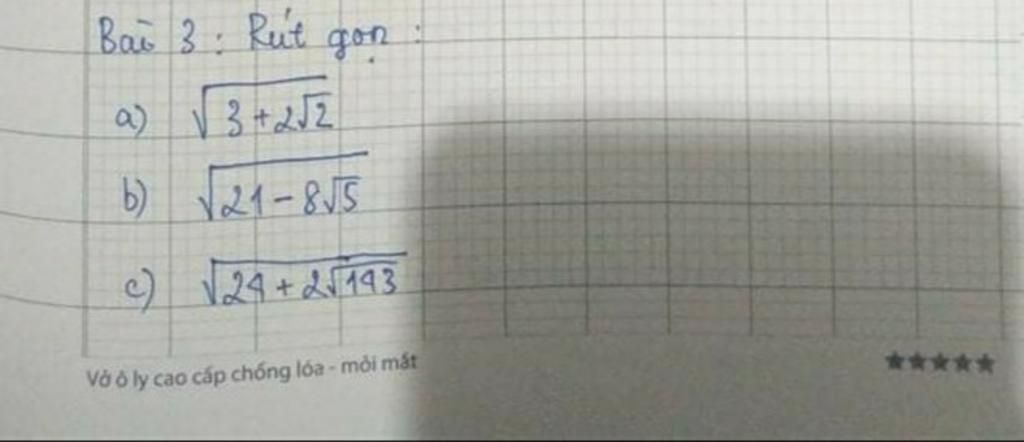 Bài 3 : Rút gọn :
a) √(3 + 2√2)
b) √(21 - 8√5)
c) √(24 + 2√143)
Vở ô ly cao cấp chống lóa - mỏi mắt
★★★★★